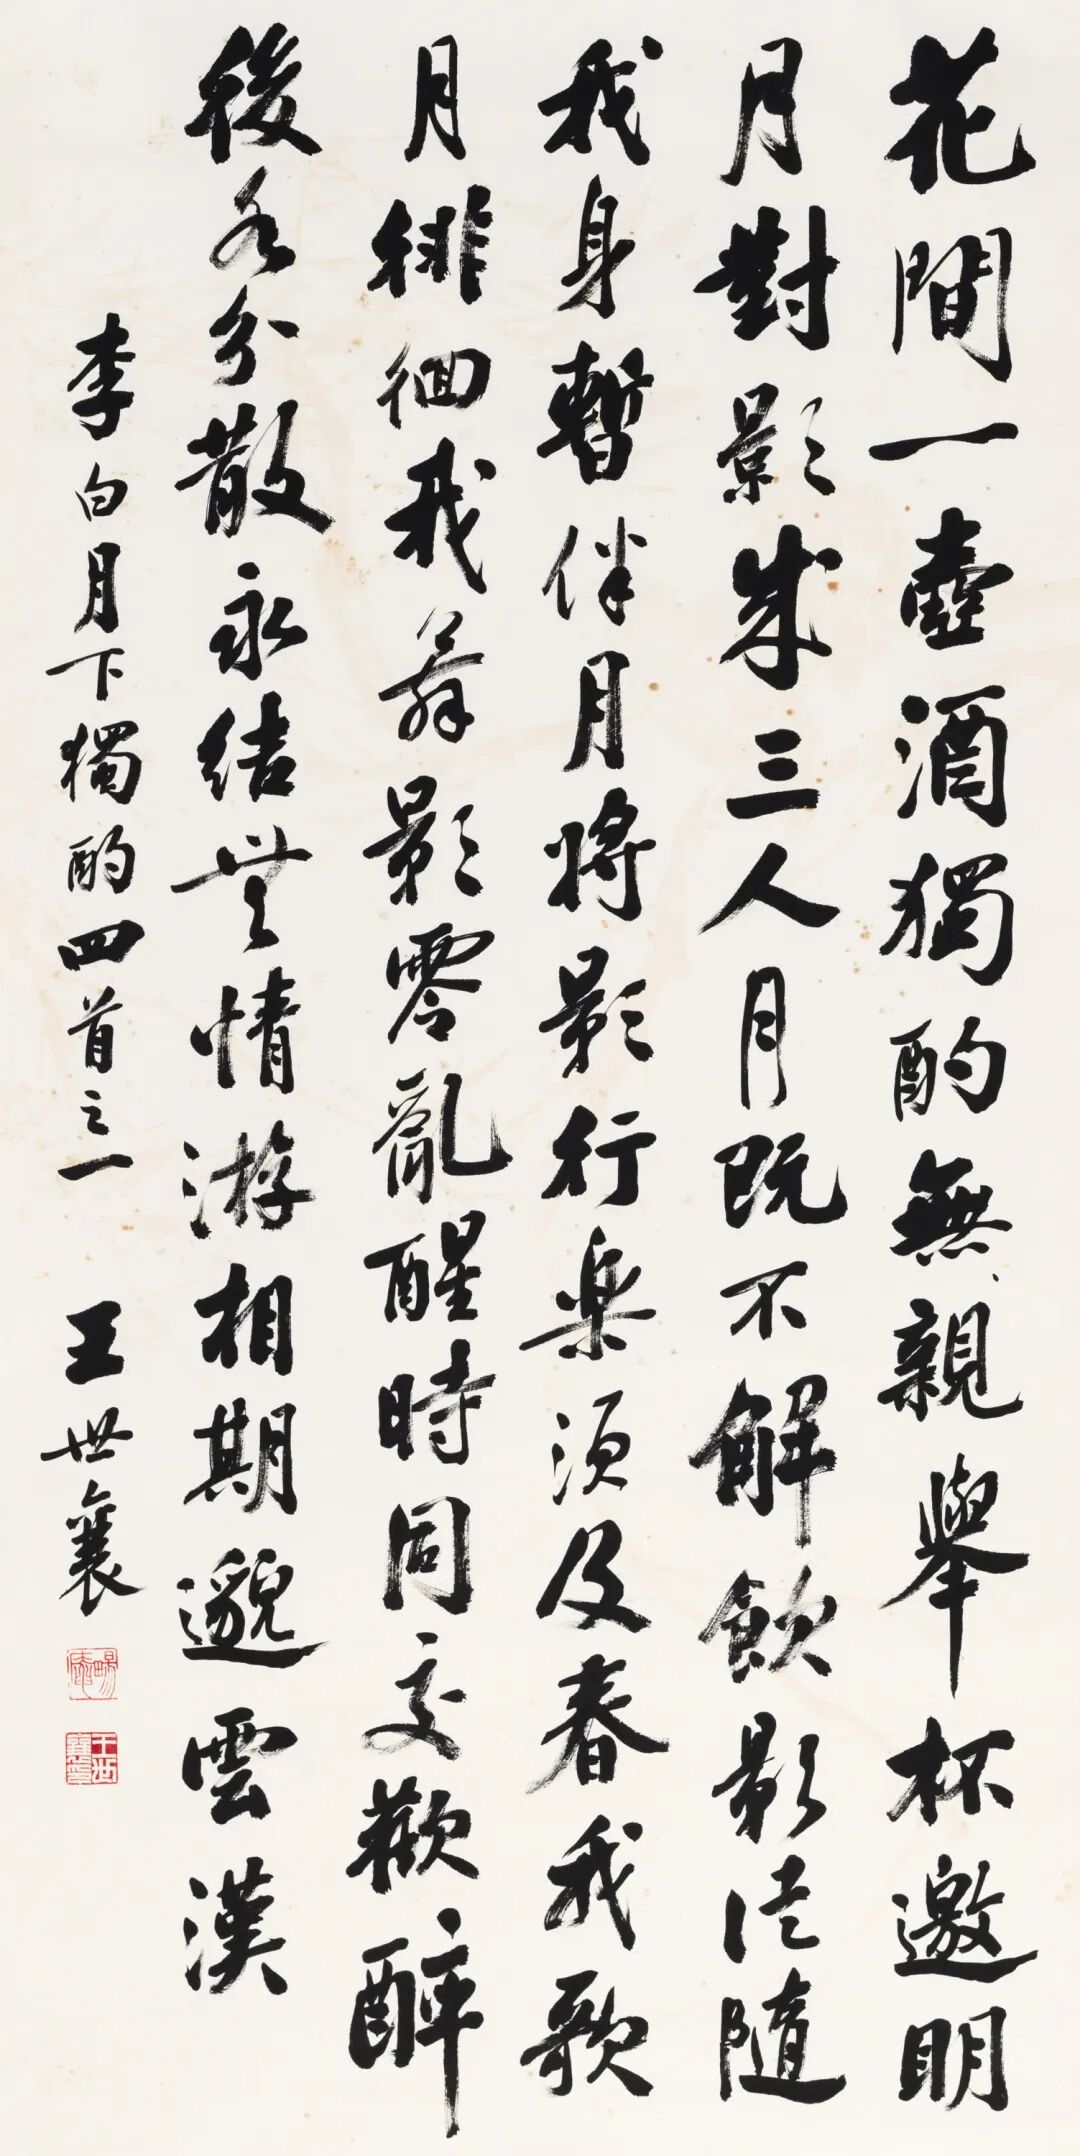 花間一壺酒獨酌無親舉杯邀明
月對影成三人月既不解飲影徒隨
我身暫伴月將影行樂須及春我歌
月徘徊我舞影零亂醒時同交歡醉
後各分散永結無情游相期邈雲漢
李白月下獨酌四首之一 王世襄
暢安
王世襄印